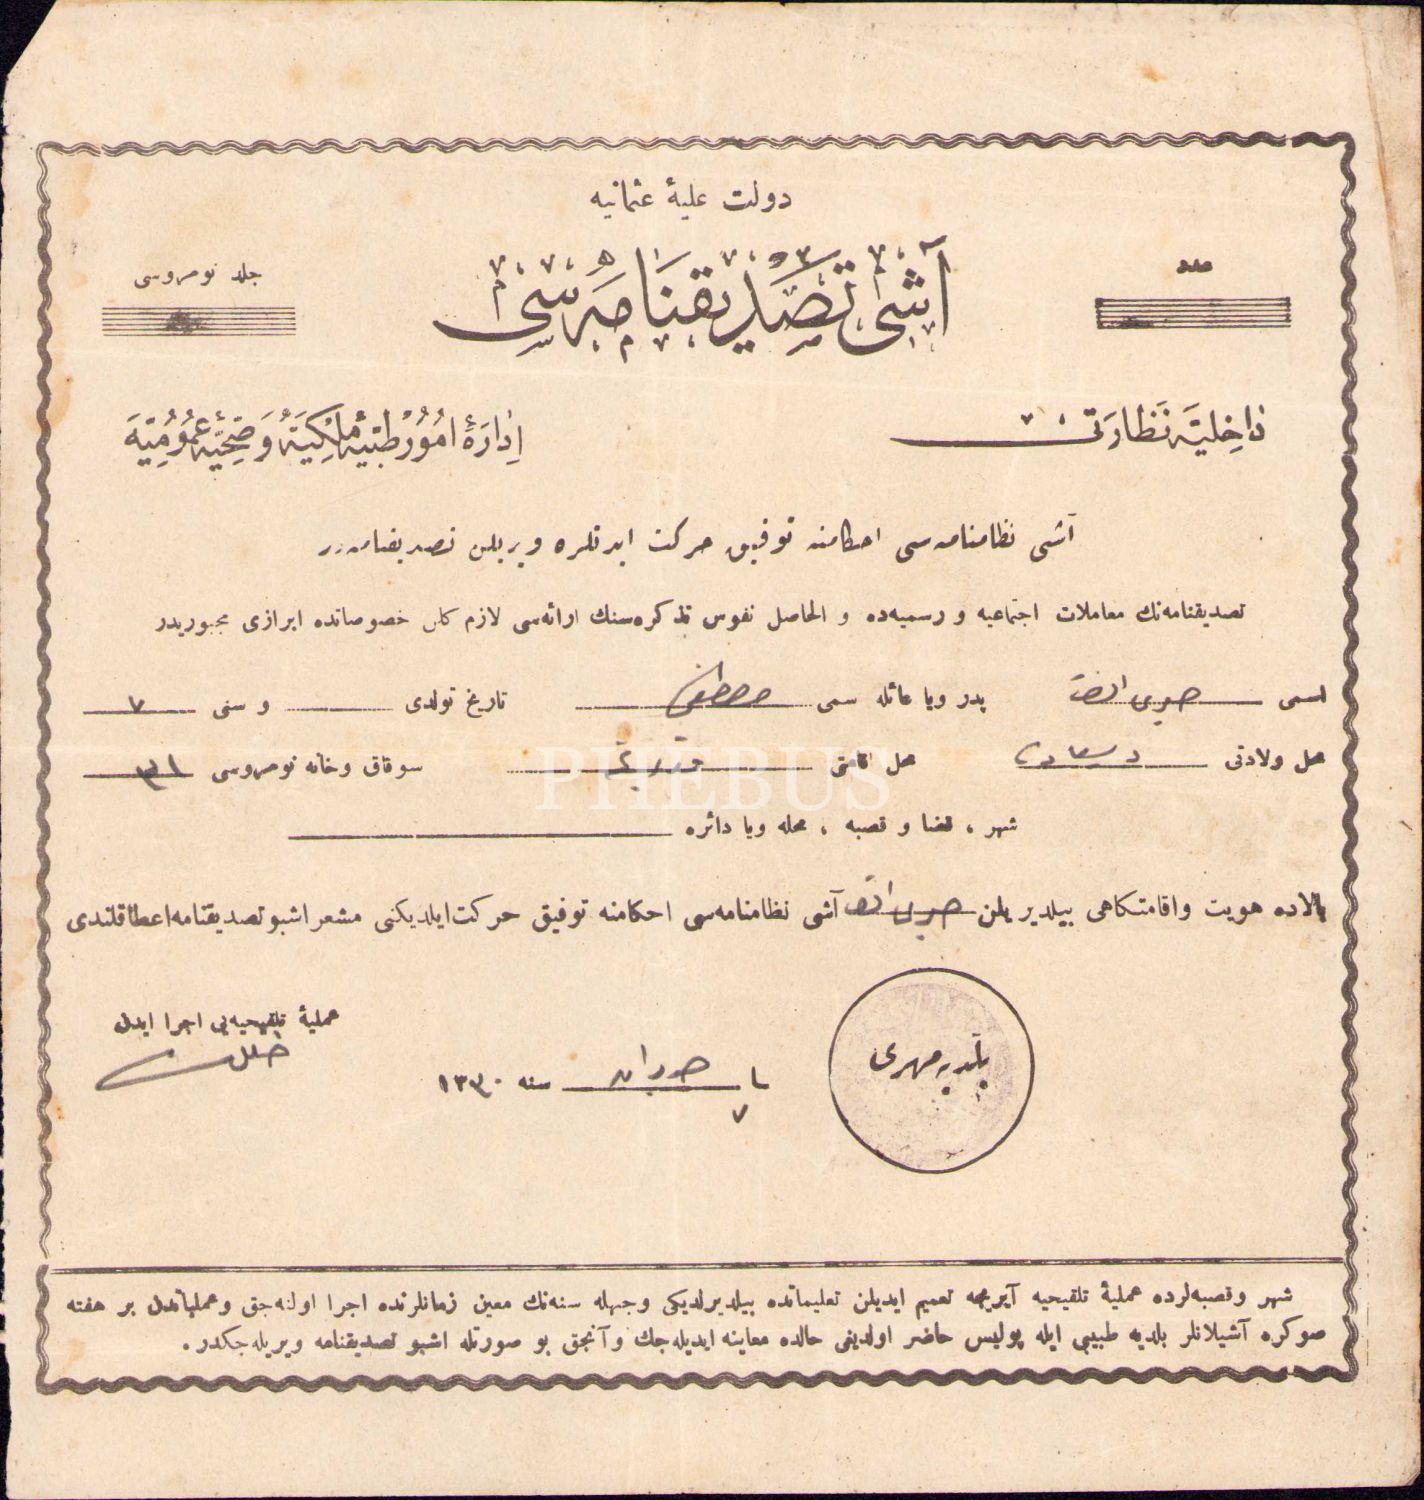 دولت علیهٔ عثمانیه
عدد
آشی تصدیقنامه‌سی
جلد نومروسی
داخلیه نظارتی
ادارهٔ امور طبیهٔ ملکیه و صحیهٔ عمومیه
آشی نظامنامه‌سی احکامنه توفیق حرکت ایدنلره ویریلن تصدیقنامه‌در
تصدیقنامه‌نك معاملات اجتماعیه و رسمیه‌ده و الحاصل نفوس تذکره‌سنك ارائه‌سی لازم کلن خصوصاتده ابرازی مجبوریدر
اسمی صبری افندی پدر ویا عائله سمی مصطفی تاریخ تولدی و سنی ٧
محل ولادتی درسعادت محل اقامتی سوقاق وخانه نومروسی
شهر ، قضا و قصبه ، محله ویا دائره
بالاده هویت واقامتکاهی بیلدیریلن صبری افندی آشی نظامنامه‌سی احکامنه توفیق حرکت ایلدیکنی مشعر اشبو تصدیقنامه اعطا قلندی
بلدیه مهری
عملیهٔ تلقیحیه‌یی اجرا ایدن
فی ٧ حزیران سنه ١٣٣٠
PHEBUS
شهر وقصبه‌لرده عملیهٔ تلقیحیه آیریجه تعمیم ایدیلن تعلیماتده بیلدیرلدیکی وجهله سنه‌نك معین زمانلرنده اجرا اولنه‌جق وعملیاتدن بر هفته
صوکره آشیلانلر بلدیه طبیبی ایله پولیس حاضر اولدیغی حالده معاینه ایدیله‌جك وآنجق بو صورتله اشبو تصدیقنامه ویریله‌جکدر .